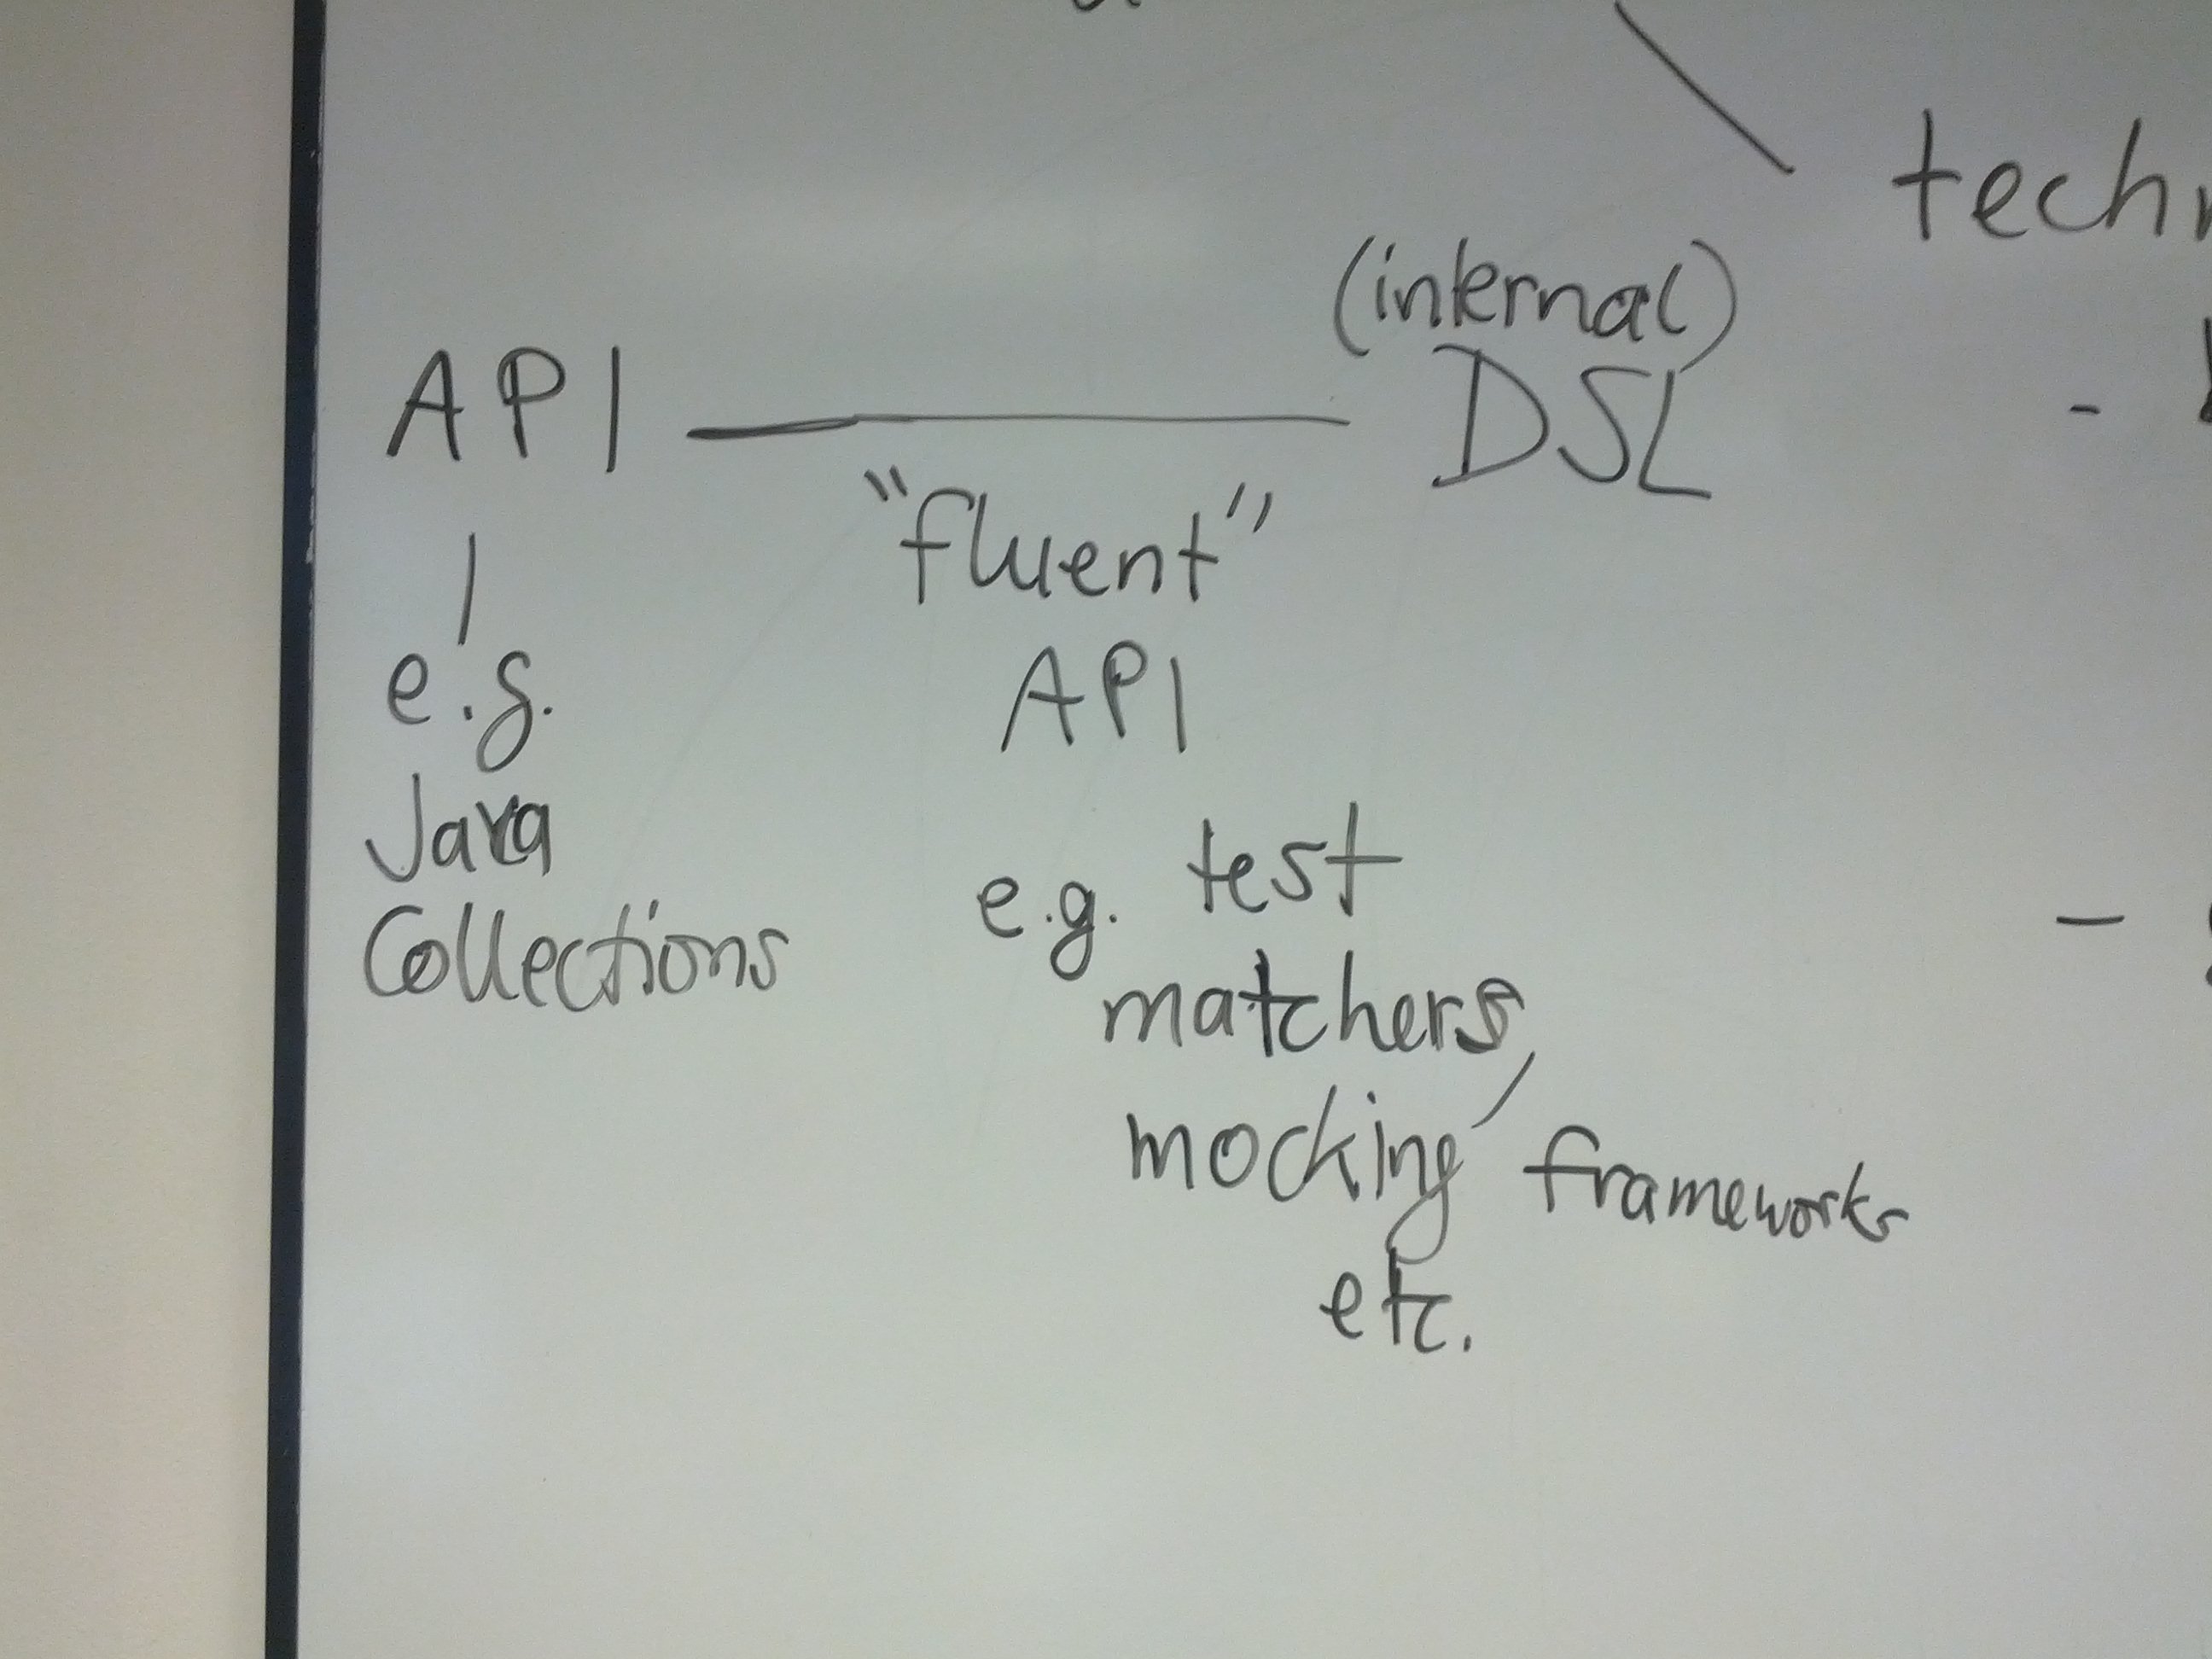 (internal)
API DSL
"fluent"
API
e.g.
Java
Collections
e.g. test
matchers,
mocking frameworks
etc.